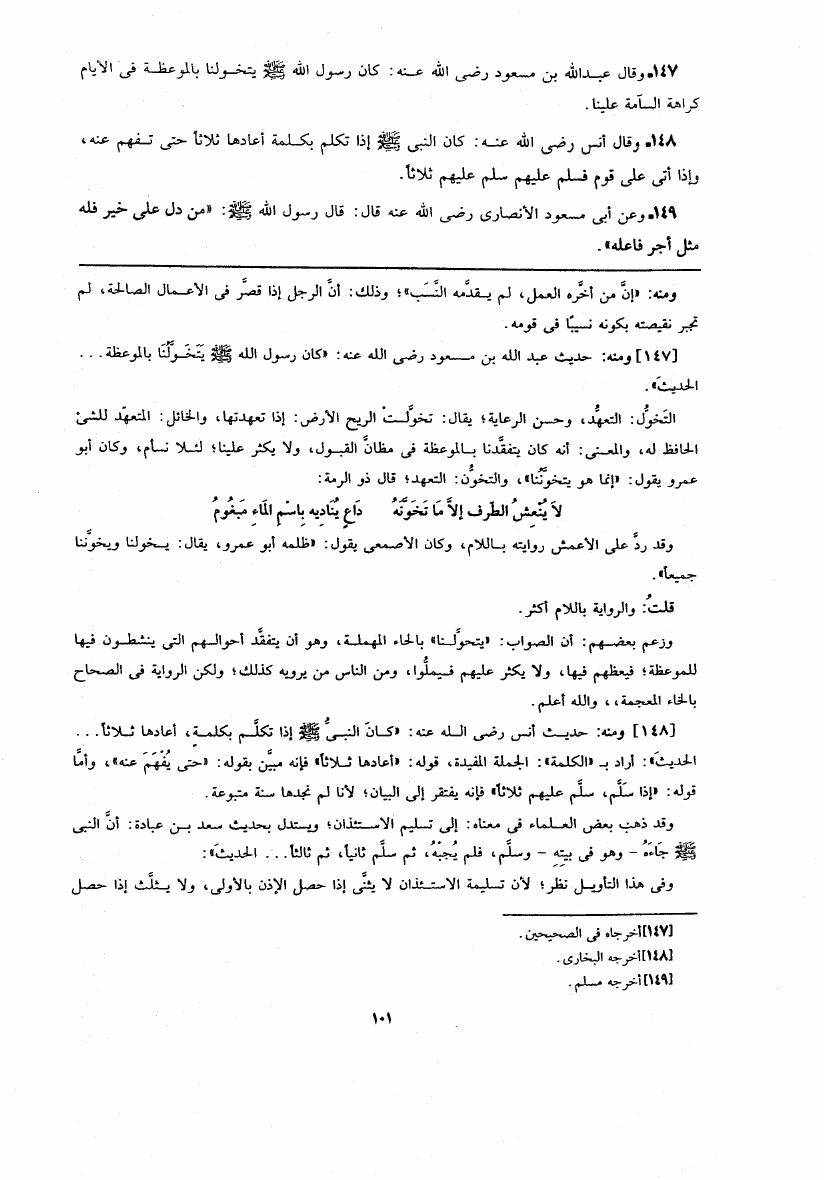 ١٤٧ـ وقال عبدالله بن مسعود رضى الله عنه: كان رسول الله ﷺ يتخولنا بالموعظة فى الأيام
كراهة السآمة علينا.
١٤٨ـ وقال أنس رضى الله عنه: كان النبى ﷺ إذا تكلم بكلمة أعادها ثلاثاً حتى تفهم عنه،
وإذا أتى على قوم فسلم عليهم سلم عليهم ثلاثاً.
١٤٩ـ وعن أبى مسعود الأنصارى رضى الله عنه قال: قال رسول الله ﷺ: «من دل على خير فله
مثل أجر فاعله».
ومنه: «إنَّ من أخَّره العمل، لم يقدَّمه النَّسَب»؛ وذلك: أنَّ الرجل إذا قصَّر فى الأعمال الصالحة، لم
تجبر نقيصته بكونه نسيبًا فى قومه.
[١٤٧] ومنه: حديث عبد الله بن مسعود رضى الله عنه: «كان رسول الله ﷺ يَتَخَوَّلُنَا بالموعظة...
الحديث».
التَّخوُّل: التعهُّد، وحسن الرعاية؛ يقال: تخوَّلتْ الريح الأرض: إذا تعهدتها، والخائل: المتعهّد للشئ
الحافظ له، والمعنى: أنه كان يتفقَّدنا بالموعظة فى مظانَّ القبول، ولا يكثر علينا؛ لئلا نسأم، وكان أبو
عمرو يقول: «إنما هو يتخوَّنُنا»، والتخوُّن: التعهد؛ قال ذو الرمة:
لاَ يُنْعِشُ الطَّرف إلاَّ مَا تَخَوَّنَهُ   دَاعٍ يُنَادِيه بِاسْمِ المَاءِ مَبْغُومُ
وقد ردَّ على الأعمش روايته باللام، وكان الأصمعى يقول: «ظلمه أبو عمرو، يقال: يخولنا ويخوَّننا
جميعاً».
قلتُ: والرواية باللام أكثر.
وزعم بعضهم: أن الصواب: «يتحوَّلنا» بالحاء المهملة، وهو أن يتفقَّد أحوالهم التى ينشطون فيها
للموعظة؛ فيعظهم فيها، ولا يكثر عليهم فيملُّوا، ومن الناس من يرويه كذلك؛ ولكن الرواية فى الصحاح
بالخاء المعجمة،، والله أعلم.
[١٤٨] ومنه: حديث أنس رضى الله عنه: «كانَ النبىُّ ﷺ إذا تكلَّم بكلمةٍ، أعادها ثلاثاً...
الحديث»: أراد بـ «الكلمة»: الجملة المفيدة، قوله: «أعادها ثلاثاً» فإنه مبيَّن بقوله: «حتى يُفْهَمَ عنه»، وأمَّا
قوله: «إذا سَلَّم، سلَّم عليهم ثلاثاً» فإنه يفتقر إلى البيان؛ لأنا لم نجدها سنة متبوعة.
وقد ذهب بعض العلماء فى معناه: إلى تسليم الاستئذان؛ ويستدل بحديث سعد بن عبادة: أنَّ النبى
ﷺ جاءَهُ - وهو فى بيتِهِ - وسلَّم، فلم يُجِبْهُ، ثم سلَّم ثانياً، ثم ثالثاً... الحديث»:
وفى هذا التأويل نظر؛ لأن تسليمة الاستئذان لا يثنَّى إذا حصل الإذن بالأولى، ولا يثلَّث إذا حصل
[١٤٧]أخرجاه فى الصحيحين.
[١٤٨]أخرجه البخارى.
[١٤٩]أخرجه مسلم.
١٠١